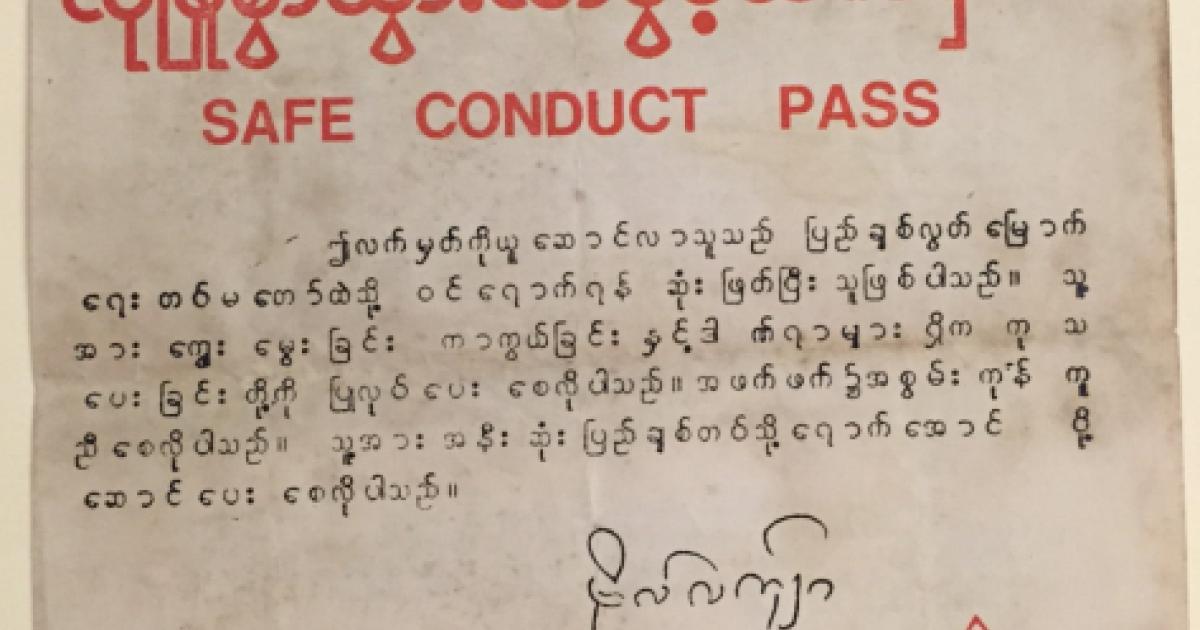 SAFE CONDUCT PASS
ဤလက်မှတ်ကိုယူဆောင်လာသူသည် ပြည်ချစ်လွတ်မြောက်
ရေးတစ်မတော်ထဲသို့ ဝင်ရောက်ရန် ဆုံးဖြတ်ပြီးသူဖြစ်ပါသည်။ သူ့
အား ကျွေးမွေးခြင်း ကာကွယ်ခြင်း နှင့်ဒါဏ်ရာများ ရှိက ကုသ
ပေးခြင်းတို့ကို ပြုလုပ်ပေးစေလိုပါသည်။ အဖက်ဖက်၌အစွမ်းကုန် ကူ
ညီစေလိုပါသည်။ သူ့အား အနီးဆုံးပြည်ချစ်တပ်သို့ရောက်အောင် ပို့
ဆောင်ပေးစေလိုပါသည်။